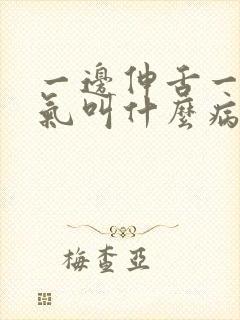 一邊伸舌一
氣叫什麼病
梅查亞